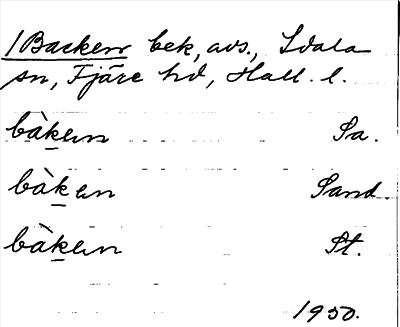 /Backen bek, avs., Idala
sn, Fjäre hd, Hall. l.
bàken Sa.
bàken Sand.
bàken St.
1950.